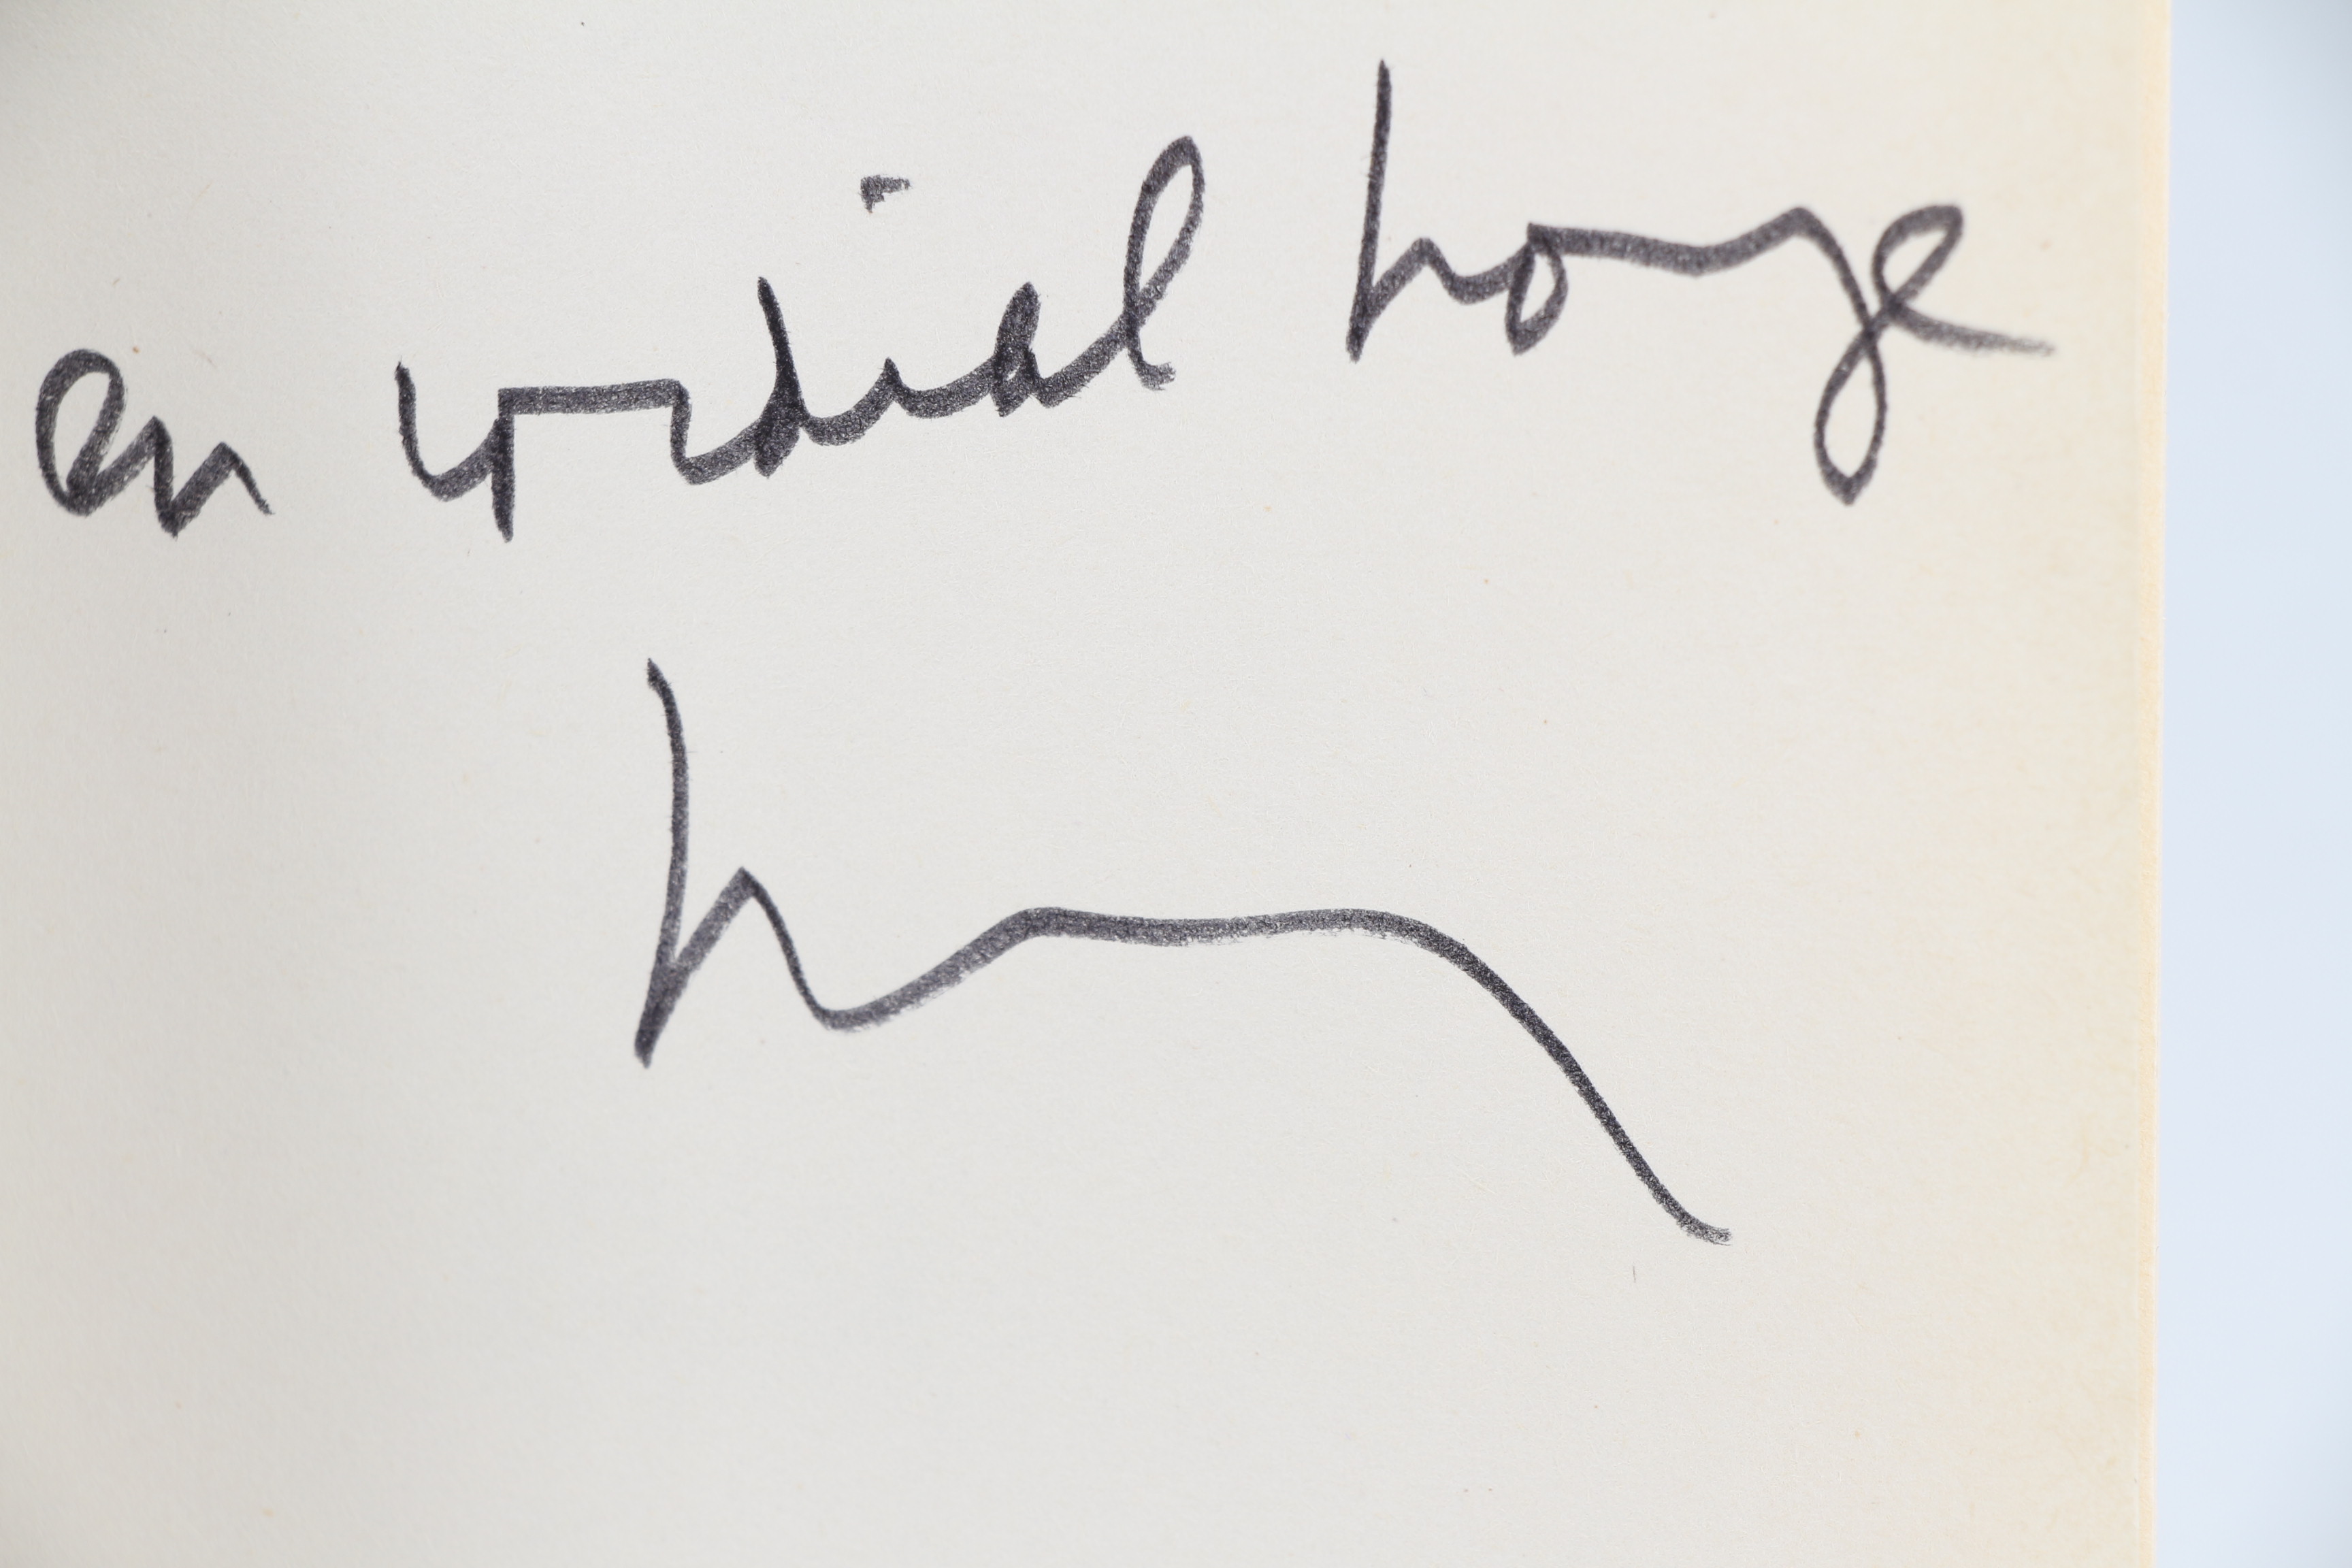 en cordial hommage